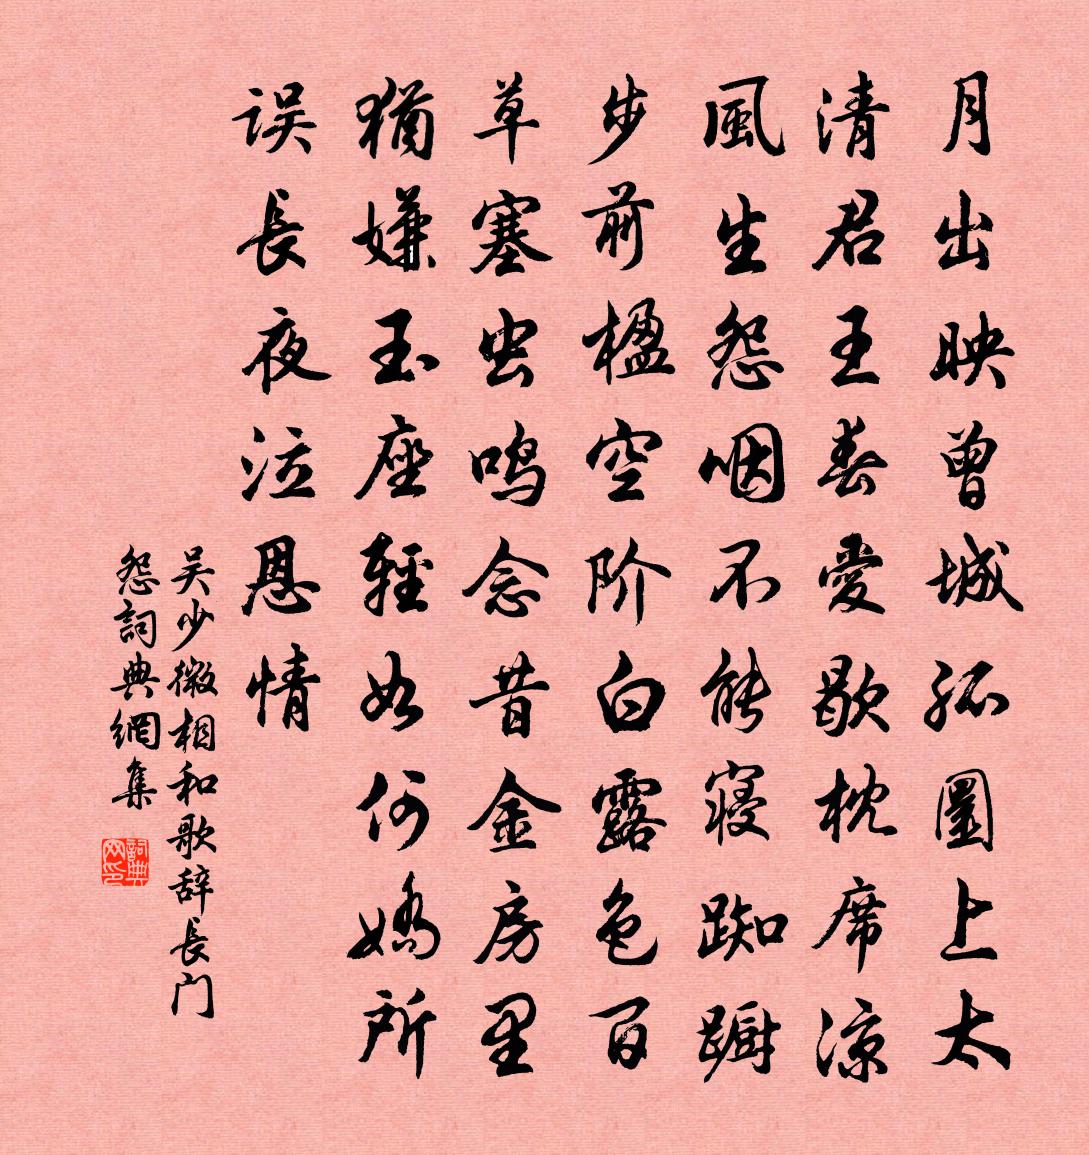 月出映曾城孤圍上太
清君王春愛歇枕席凉
風生怨咽不能寝踟蹰
步前楹空阶白露色百
草塞虫鸣念昔金房里
猶嫌玉座輕如何嬌所
误長夜泣恩情
吴少微相和歌辞長门
怨詞典網集
詞典网印